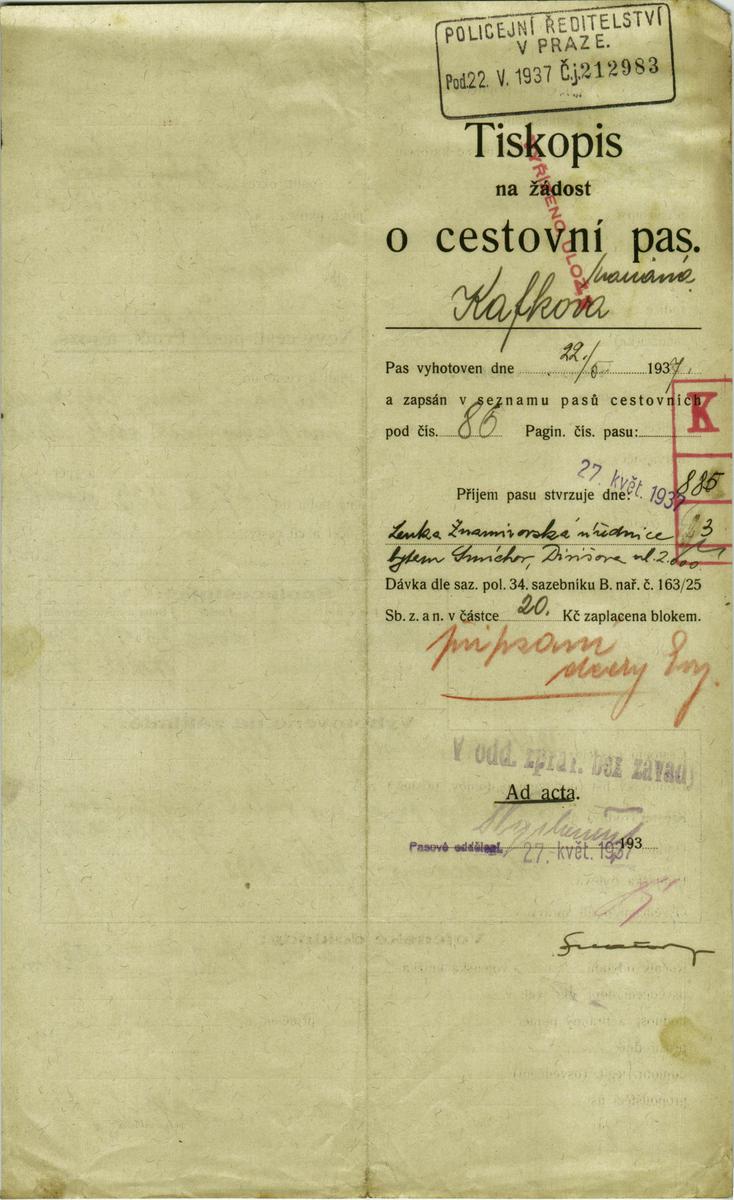 POLICEJNÍ ŘEDITELSTVÍ
V PRAZE.
Pod. 22. V. 1937 Č.j. 212983
Tiskopis
na žádost
VYŘÍZENO ULOŽ
o cestovní pas.
Mariana
Kafkova
Pas vyhotoven dne 22./5 1937.
a zapsán v seznamu pasů cestovních
K
pod čís. 86 Pagin. čís. pasu:
27. květ. 1937
885
Příjem pasu stvrzuje dne:
Lenka Znamirovská úřednice
23
bytem Smíchov, Divišova ul. 2.
Dávka dle saz. pol. 34. sazebníku B. nař. č. 163/25
Sb. z. a n. v částce 20. Kč zaplacena blokem.
připsání
dcery Evy.
V odd. zpráv. bez závad
Ad acta.
Pasové oddělení, 27. květ. 1937
193